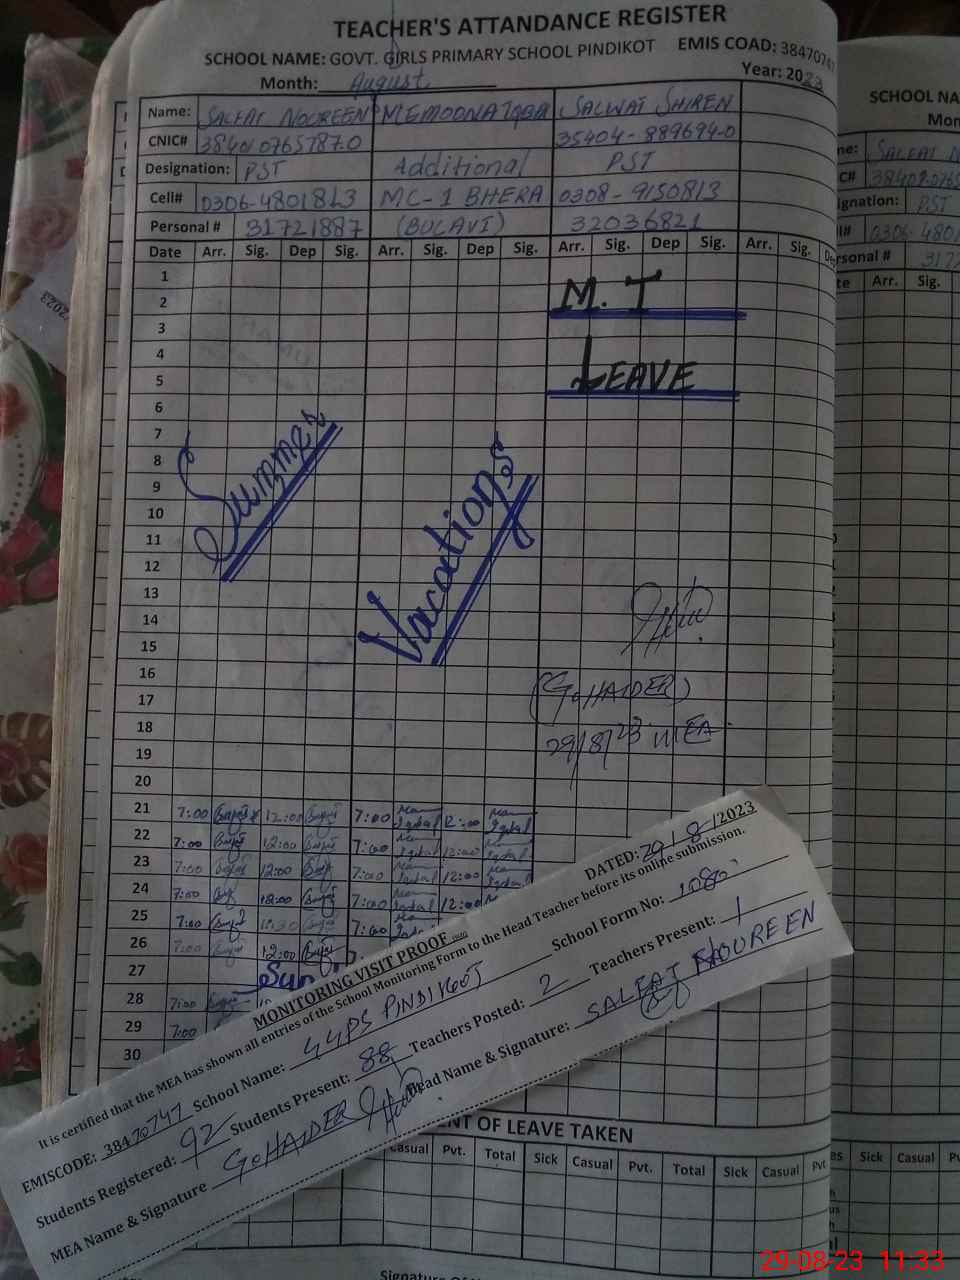 TEACHER'S ATTANDANCE REGISTER
SCHOOL NAME: GOVT. GIRLS PRIMARY SCHOOL PINDIKOT EMIS COAD: 3847074
Month: August Year: 2023
Name: SALFAT NOUREEN MEMOONA IQBA SALWAT SHIREN
CNIC# 35404-889694-0
Designation: PST Additional PST
Cell# 0306-4801813 MC-1 BHERA 0308-9150813
Personal # 31721887 (BUCAVI) 32036821
Date Arr. Sig. Dep Sig. Arr. Sig. Dep Sig. Arr. Sig. Dep Sig. Arr. Sig.
1
2 M. T
3
4
5 LEAVE
6
7
8
9
10
11
12
Summer
Vacations
13
14
15
16
17 (G. HAIDER)
18
19 29/8/23 MEA
20
21 7:00 12:00 7:00 Iqbal 12:00 Iqbal
22 7:00 12:00 7:00 Iqbal 12:00 Iqbal
23 7:00 12:00 7:00 Iqbal 12:00 Iqbal
24 7:00 12:00 7:00 Iqbal 12:00
25 7:00 7:00 Iqbal
26 7:00 12:00
27 Sun
28 7:00
29 7:00
30
MONITORING VISIT PROOF DATED: 29/8/2023
It is certified that the MEA has shown all entries of the School Monitoring Form to the Head Teacher before its online submission.
EMISCODE: 38470747 School Name: GGPS PINDIKOT School Form No: 1080
Students Registered: 92 Students Present: 88 Teachers Posted: 2 Teachers Present: 1
MEA Name & Signature G. HAIDER Head Name & Signature: SALFAT NOUREEN
NT OF LEAVE TAKEN
Casual Pvt. Total Sick Casual Pvt. Total Sick Casual Pvt.
SCHOOL NA
Mon
CNIC
ignation: PST
0306-480
rsonal # 317
te Arr. Sig.
Sick Casual
Signature
29-08-23 11:33